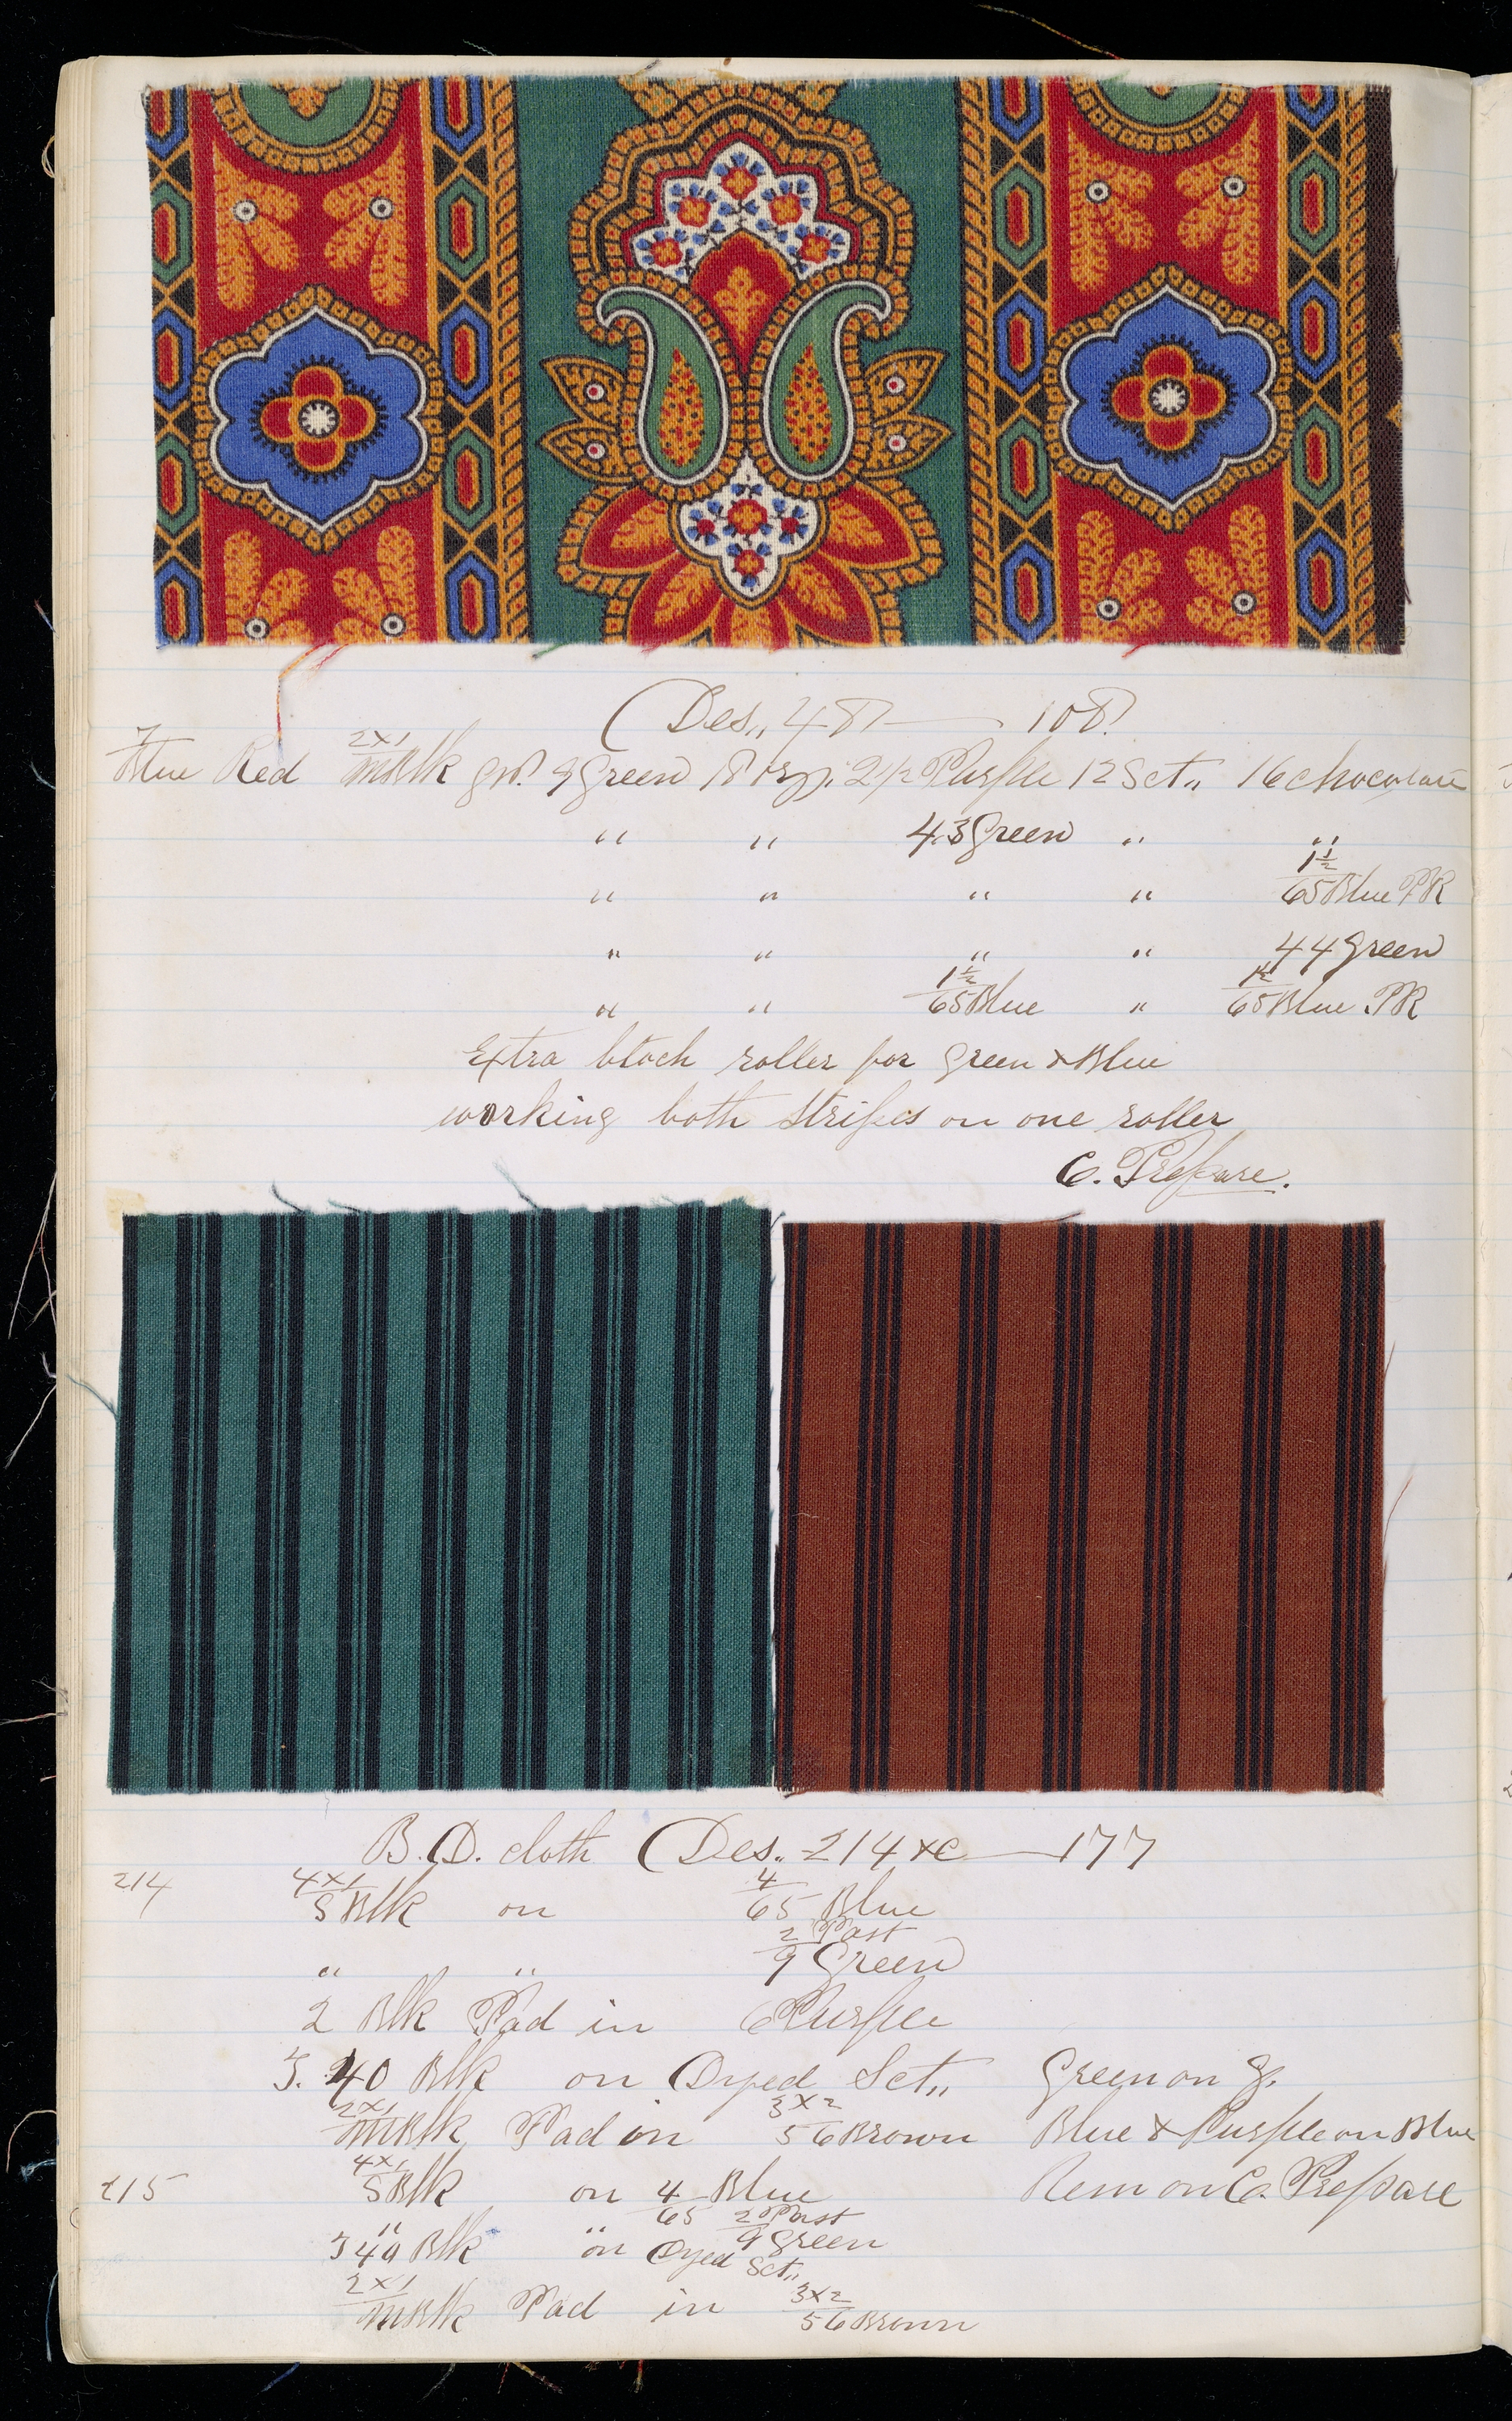 (Des,, 487 — 108.
7
Blue Red 2x1/m Blk gd. 9 Green 18 2 1/2 Purple 12 Sct,, 16 chocolate
" " 43 Green " "
" " " " 1 1/2/65 Blue PR
" " " " 44 Green
" " 1 1/2/65 Blue " 1 1/2/65 Blue PR
Extra block roller for Green & Blue
working both stripes on one roller
C. Prepare.
B.D. cloth (Des.. 214 xc — 177
214 4x1/S Blk on 4/65 Blue
" " 2 Past/9 Green
2 Blk Pad in 6 Purple
J. 40 Blk on Dyed Sct,, Green on g.
2x1/m Blk Pad in 3x2/56 Brown Blue & Purple on Blue
215 4x1/S Blk on 4/65 Blue Rem on C. Prepare
" " 2 Past/9 Green
J 40 Blk on Dyed Sct,,
2x1/m Blk Pad in 3x2/56 Brown